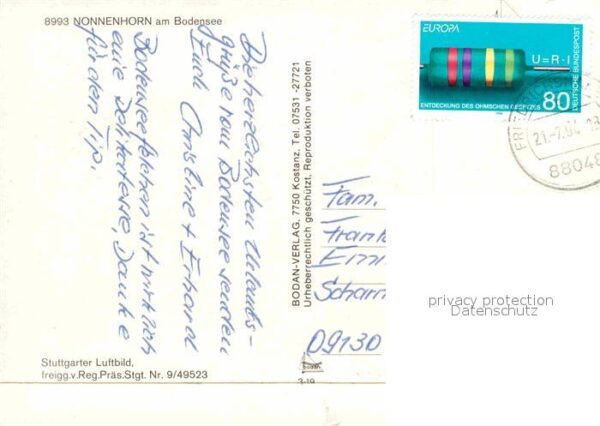 8993 NONNENHORN am Bodensee
Die herzlichsten Urlaubs-
grüße vom Bodensee senden
Euch Christine + Erhard
Bodenseefelchen ist wirklich
eine Delikatesse, Danke
für den Tip.
Stuttgarter Luftbild,
freigg.v.Reg.Präs.Stgt. Nr. 9/49523
BODAN-VERLAG, 7750 Kostanz. Tel. 07531 -27721
Urheberrechtlich geschützt, Reproduktion verboten
3-19
EUROPA
U=R·I
DEUTSCHE BUNDESPOST
ENTDECKUNG DES OHMSCHEN GESETZES
80
21.-7.94
88048
Fam.
09130
privacy protection
Datenschutz